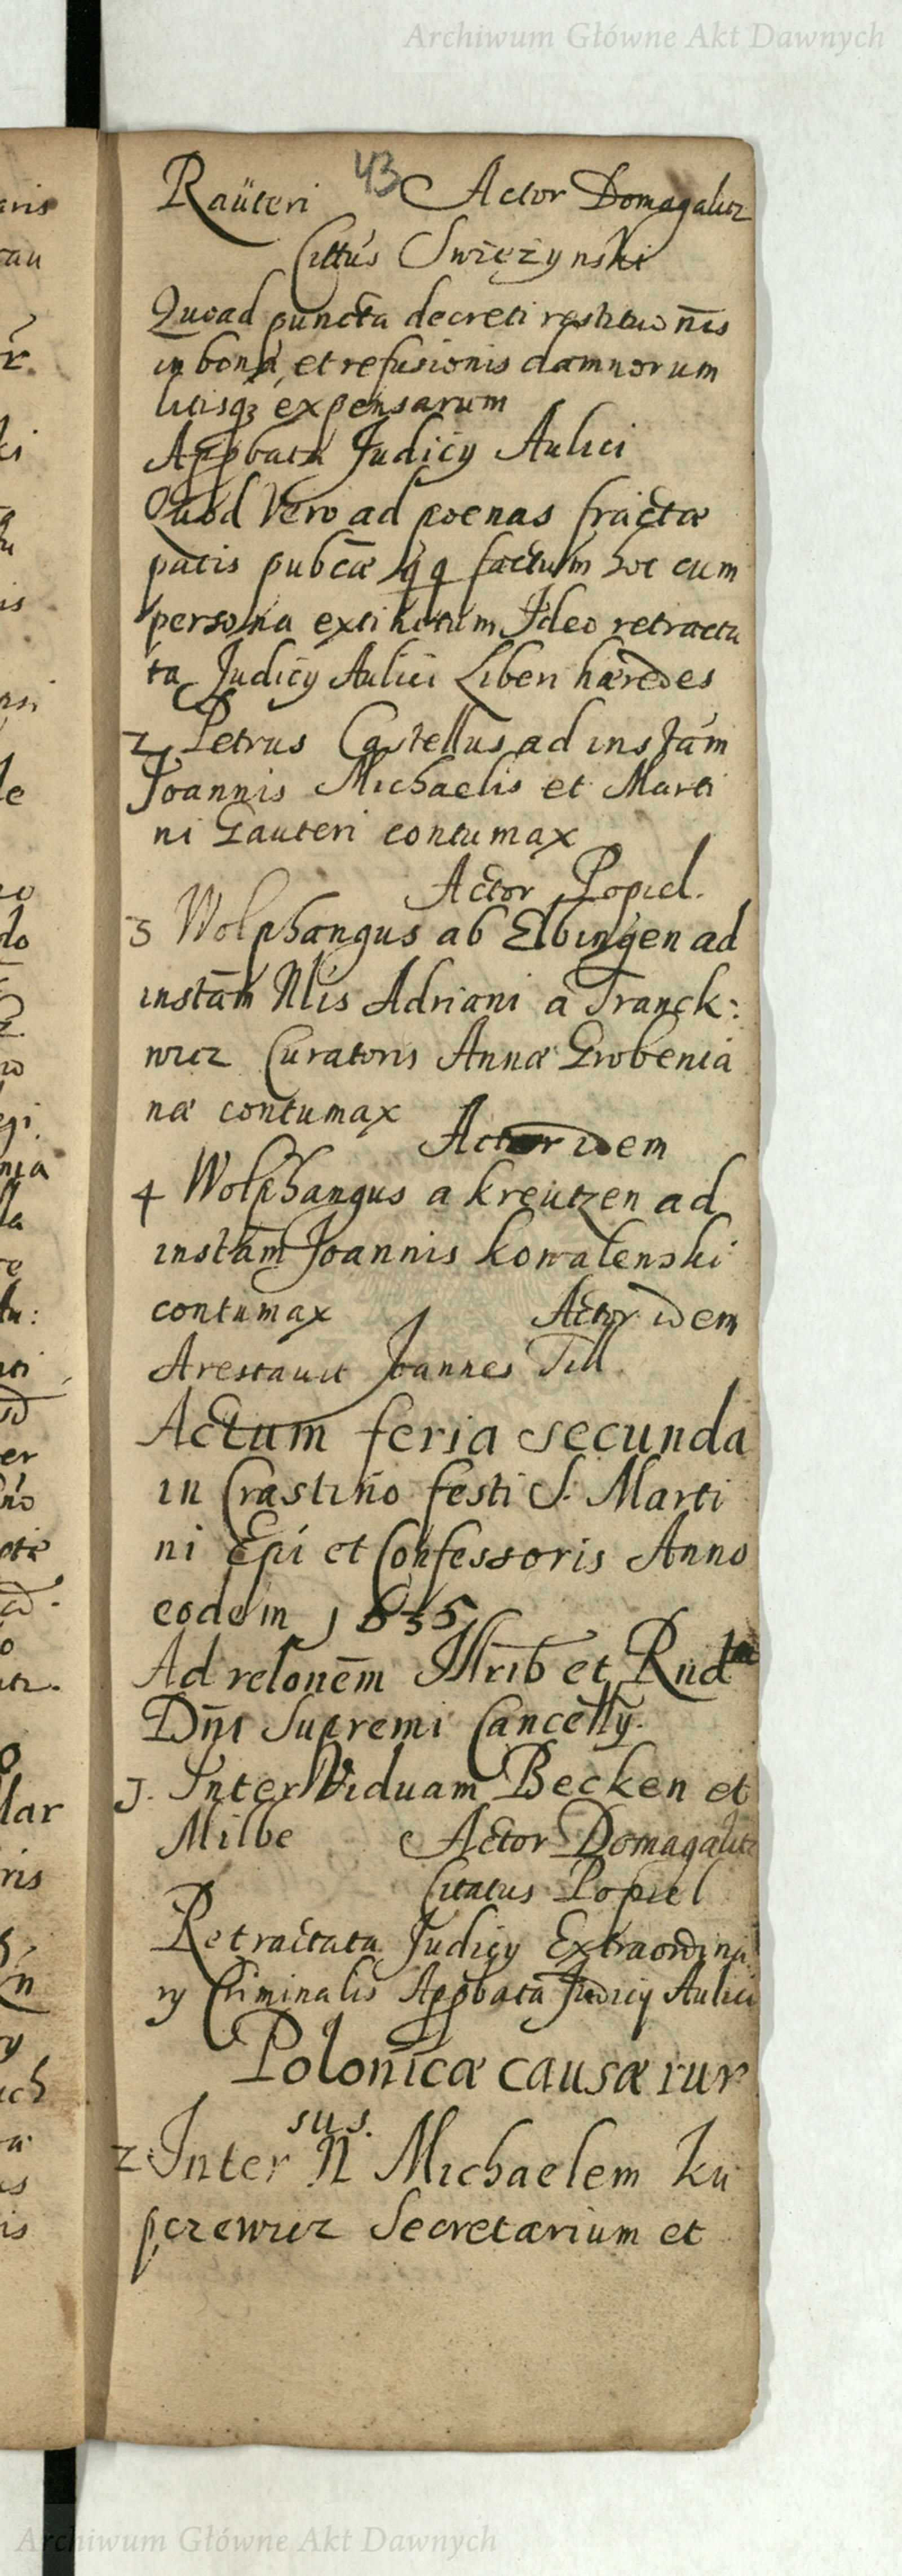 Archiwum Główne Akt Dawnych
43
Raüteri Actor Domagalicz
Cittus Swięzynski
Quoad puncta decreti restitucionis
in bona, et refusionis damnorum
litisq3 expensarum
Appbata Judicÿ Aulici
Quod Vero ad poenas fractæ
pacis pubcæ qq factum hoc cum
persona extinctum Ideo retracta
ta Judicÿ Aulici Liberi hæredes
2 Petrus Castellus ad instam
Joannis Michaelis et Marti
ni Gauteri contumax
Actor Popiel.
3 Wolphangus ab Elbingen ad
instam Nlis Adriani a Tranck:
wicz Curatoris Annæ Grobenia
næ contumax
Actor idem
4 Wolphangus a kreutzen ad
instam Joannis kowalenski
contumax Actor idem
Arestauit Joannes Till
Actum feria secunda
in Crastino festi S. Marti
ni Epi et Confessoris Anno
eodem 1635
Ad relonem Illrib et Rnd
Dni Supremi Cancellÿ.
1. Inter Viduam Becken et
Milbe Actor Domagalicz
Citatus Popiel
Retractata Judicÿ Extraordina
rÿ Criminalis Appbata Judicÿ Aulici
Polonicæ causæ rur
sus.
2 Inter N Michaelem Ku
pczewicz Secretarium et
Archiwum Główne Akt Dawnych